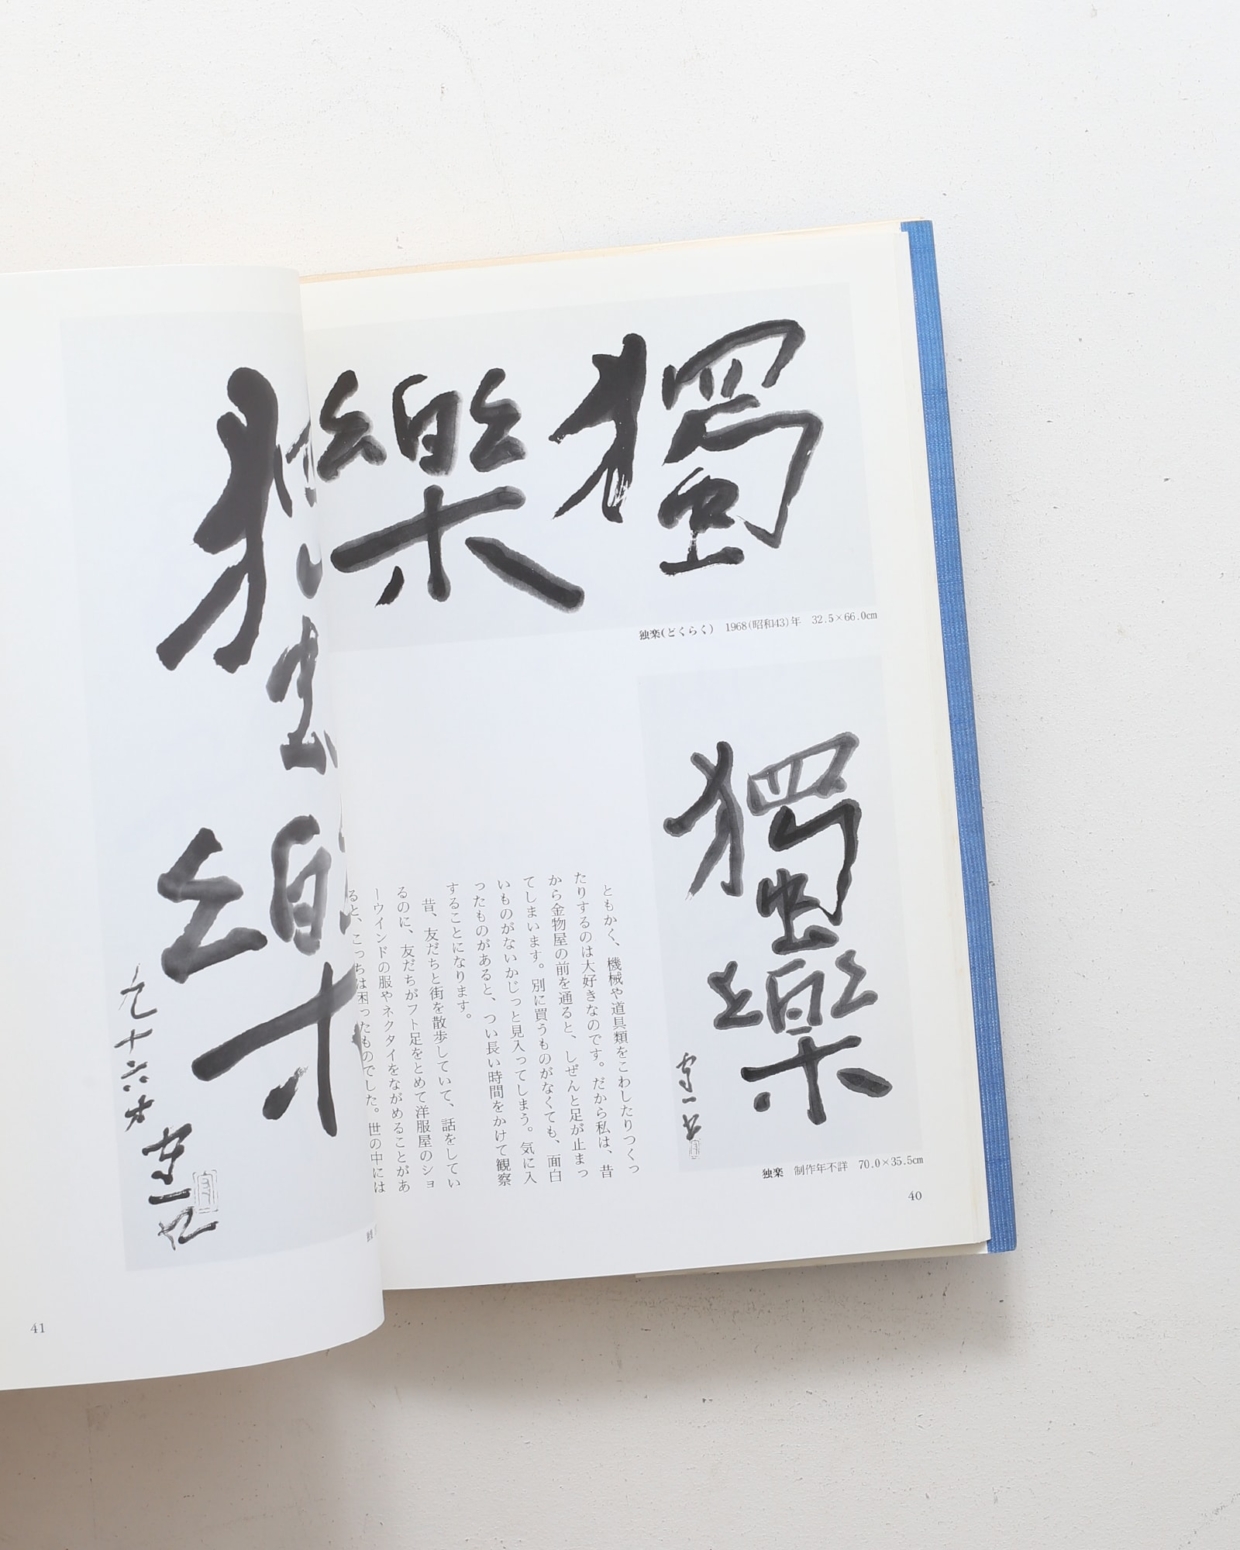 獨樂
独楽(どくらく) 1968(昭和43)年 32.5×66.0cm
獨樂
守一
独楽 制作年不詳 70.0×35.5cm
ともかく、機械や道具類をこわしたりつくっ
たりするのは大好きなのです。だから私は、昔
から金物屋の前を通ると、しぜんと足が止まっ
てしまいます。別に買うものがなくても、面白
いものがないかじっと見入ってしまう。気に入
ったものがあると、つい長い時間をかけて観察
することになります。
昔、友だちと街を散歩していて、話をしてい
るのに、友だちがフト足をとめて洋服屋のショ
ーウインドの服やネクタイをながめることがあ
ると、こっちは困ったものでした。世の中には
40
獨樂
九十六才
守一
41